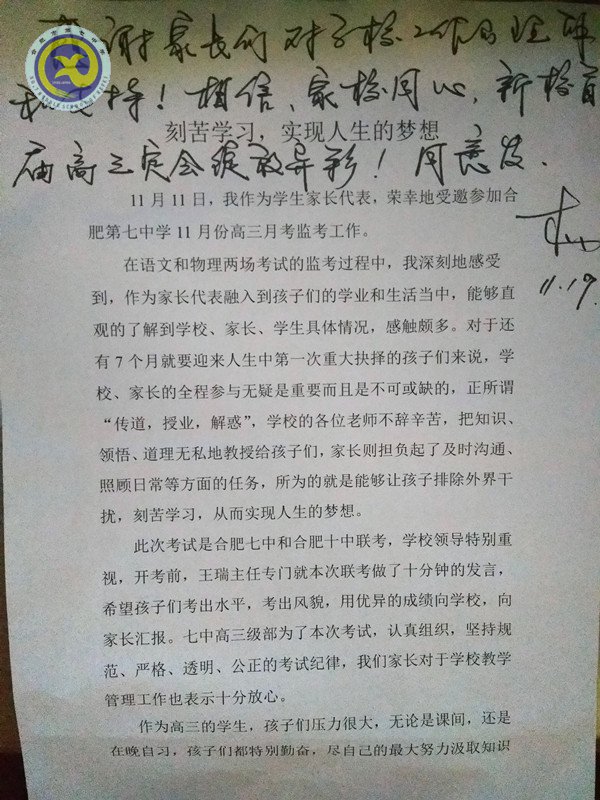 感谢家长们对学校工作的理解
和支持！相信，家校同心，新校首
刻苦学习，实现人生的梦想
届高三定会绽放异彩！同意发．
11月11日，我作为学生家长代表，荣幸地受邀参加合
肥第七中学11月份高三月考监考工作。
11.19.
在语文和物理两场考试的监考过程中，我深刻地感受
到，作为家长代表融入到孩子们的学业和生活当中，能够直
观的了解到学校、家长、学生具体情况，感触颇多。对于还
有7个月就要迎来人生中第一次重大抉择的孩子们来说，学
校、家长的全程参与无疑是重要而且是不可或缺的，正所谓
“传道，授业，解惑”，学校的各位老师不辞辛苦，把知识、
领悟、道理无私地教授给孩子们，家长则担负起了及时沟通、
照顾日常等方面的任务，所为的就是能够让孩子排除外界干
扰，刻苦学习，从而实现人生的梦想。
此次考试是合肥七中和合肥十中联考，学校领导特别重
视，开考前，王瑞主任专门就本次联考做了十分钟的发言，
希望孩子们考出水平，考出风貌，用优异的成绩向学校，向
家长汇报。七中高三级部为了本次考试，认真组织，坚持规
范、严格、透明、公正的考试纪律，我们家长对于学校教学
管理工作也表示十分放心。
作为高三的学生，孩子们压力很大，无论是课间，还是
在晚自习，孩子们都特别勤奋，尽自己的最大努力汲取知识